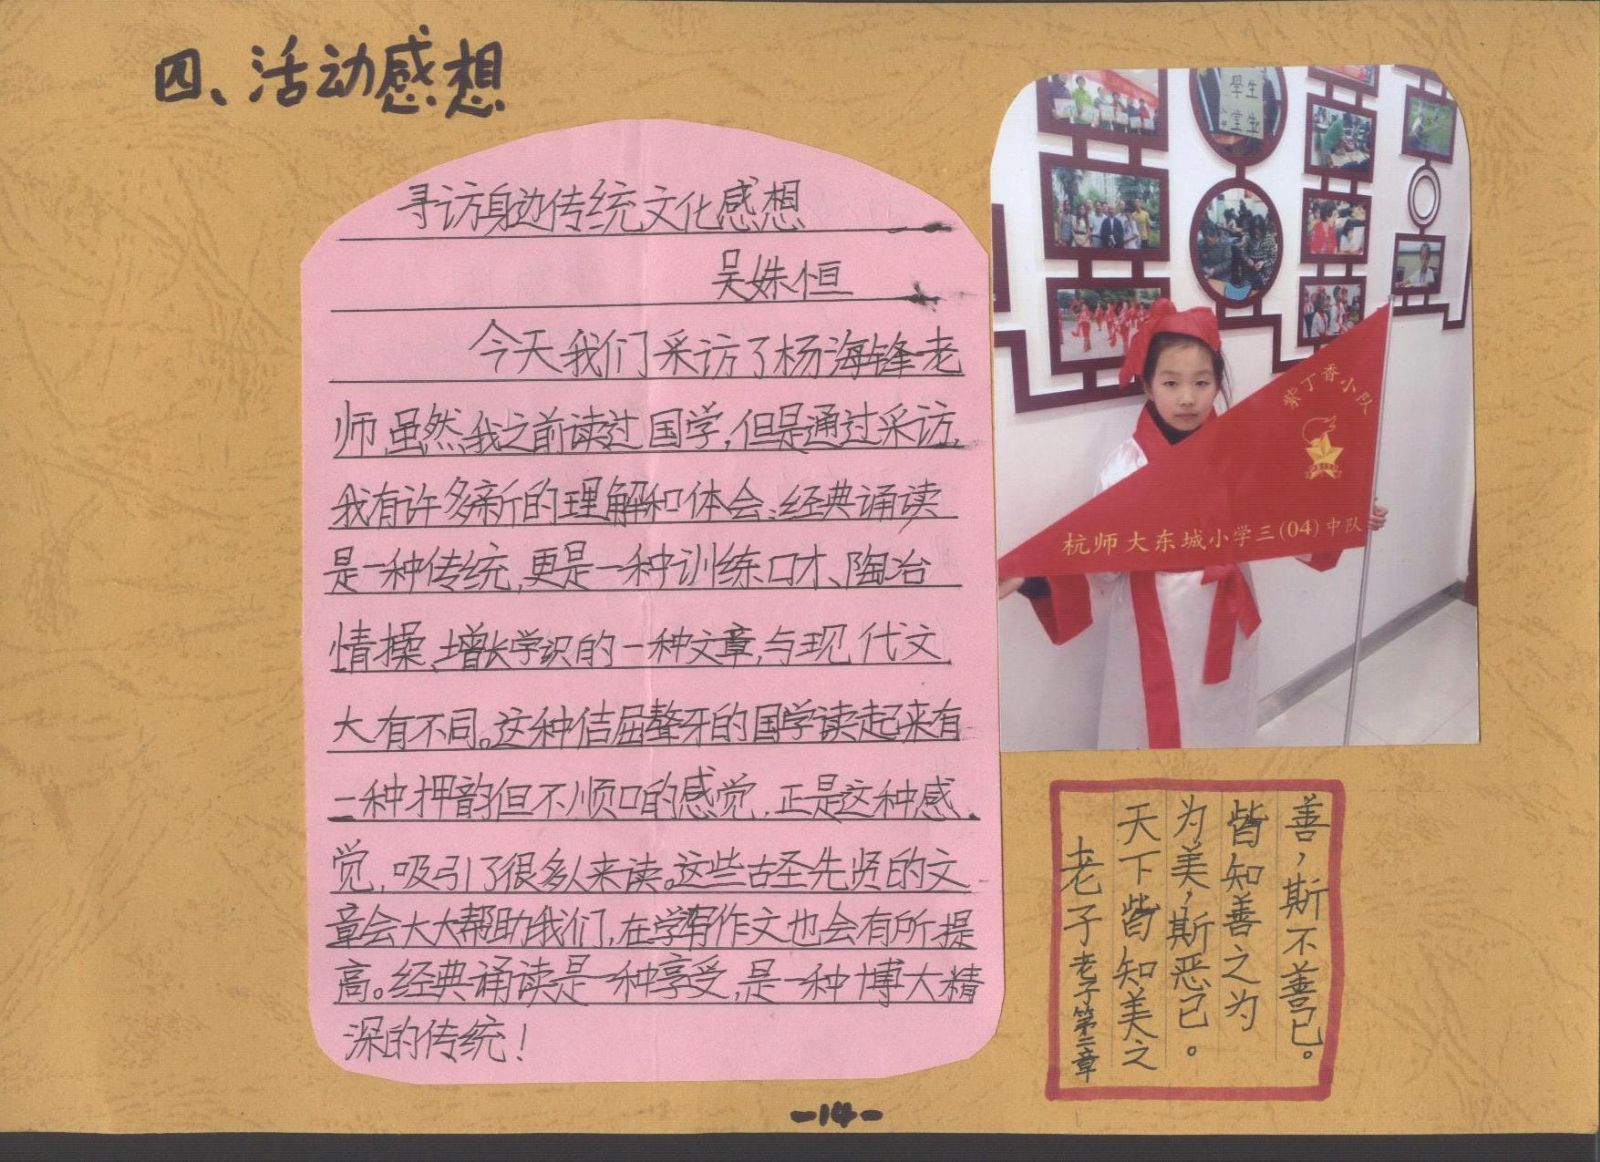 四、活动感想
寻访身边传统文化感想
吴姝恒
今天我们采访了杨海锋老
师,虽然我之前读过国学,但是通过采访,
我有许多新的理解和体会:经典诵读
是一种传统,更是一种训练口才、陶冶
情操、增长学识的一种文章,与现代文
大有不同。这种佶屈聱牙的国学读起来有
一种押韵但不顺口的感觉,正是这种感
觉,吸引了很多人来读。这些古圣先贤的文
章会大大帮助我们,在学习写作文也会有所提
高。经典诵读是一种享受,是一种博大精
深的传统!
學生
堂生
紫丁香小队
杭师大东城小学三(04)中队
老子 老子第二章
天下皆知美之
为美,斯恶已。
皆知善之为
善,斯不善已。
-14-